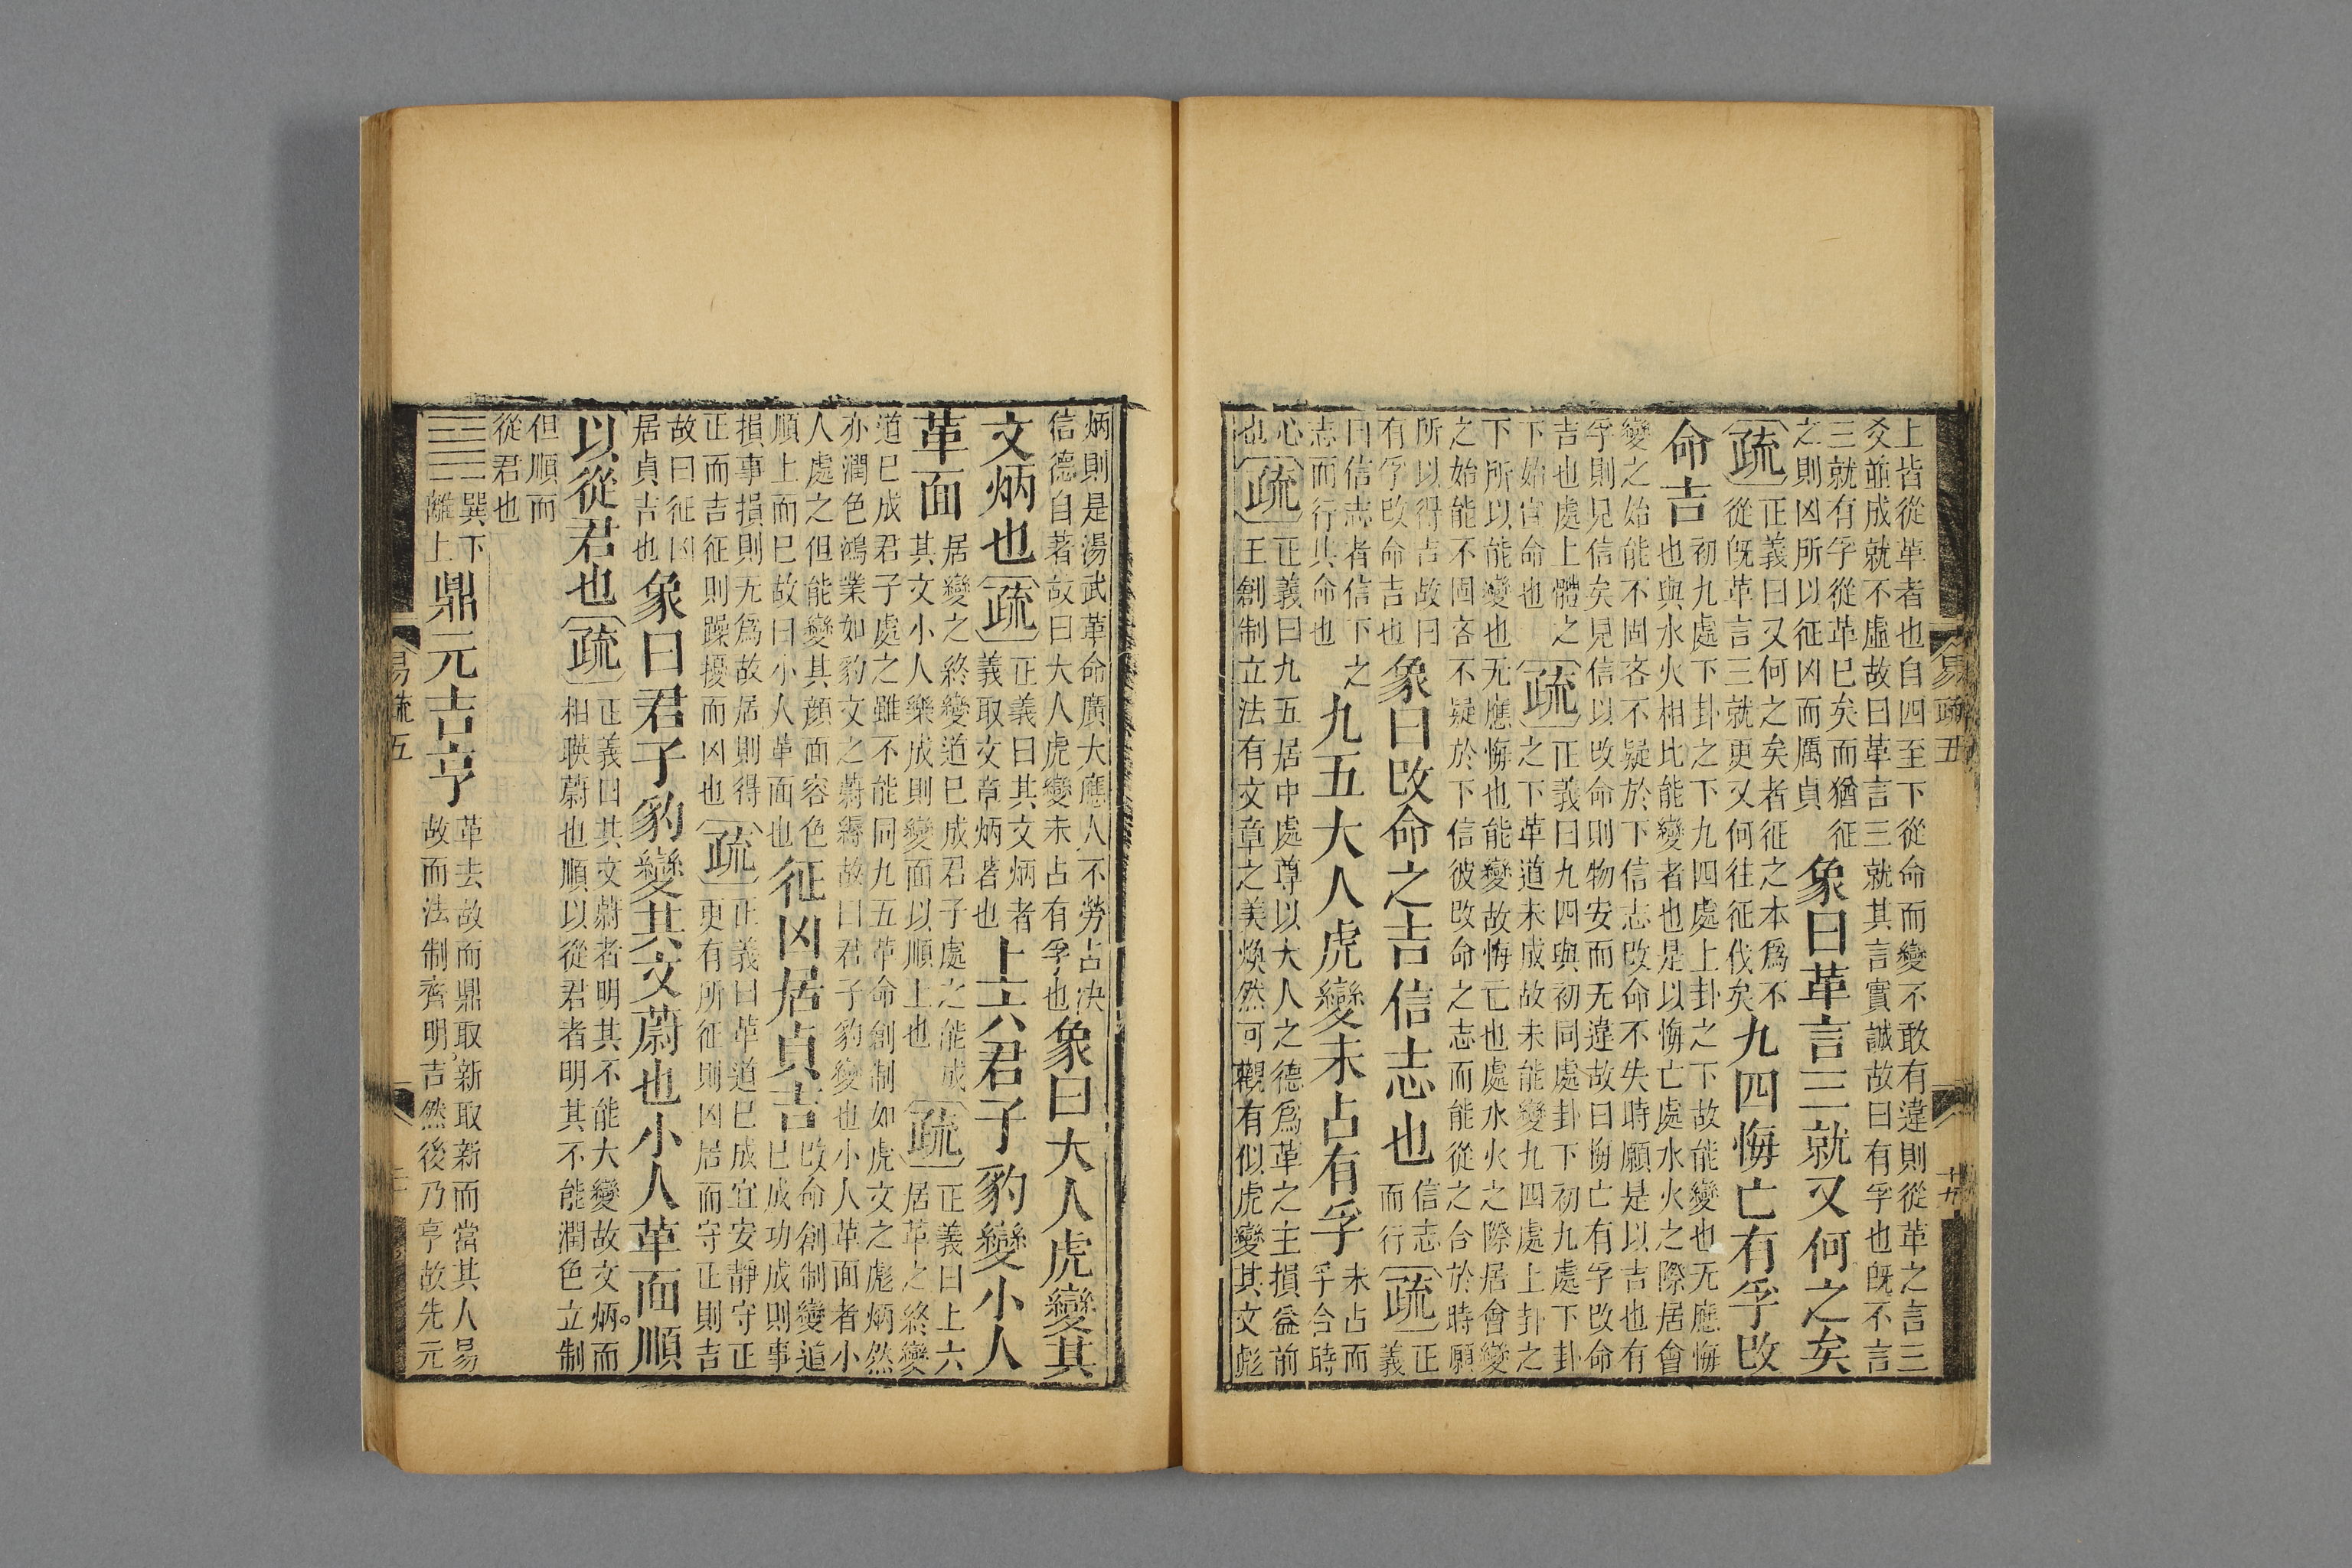 易疏五　十九
上皆從革者也自四至下從命而變不敢有違則從革之言三
爻並成就不虛故曰革言三就其言實誠故曰有孚也既不言
三就有孚從革已矣而猶征
之則凶所以征凶而厲貞
象曰革言三就又何之矣
疏
正義曰又何之矣者征之本爲不
從既革言三就更又何往征伐矣
九四悔亡有孚改
命吉
初九處下卦之下九四處上卦之下故能變也无應悔
也與水火相比能變者也是以悔亡處水火之際居會
變之始能不固吝不疑於下信志改命不失時願是以吉也有
孚則見信矣見信以改命則物安而无違故曰悔亡有孚改命
吉也處上體之
下始宣命也
疏
正義曰九四與初同處卦下初九處下卦
之下革道未成故未能變九四處上卦之
下所以能變也无應悔也能變故悔亡也處水火之際居會變
之始能不固吝不疑於下信彼改命之志而能從之合於時願
所以得吉故曰
有孚改命吉也
象曰改命之吉信志也
信志
而行
疏
正
義
曰信志者信下之
志而行其命也
九五大人虎變未占有孚
未占而
孚合時
心
也
疏
正義曰九五居中處尊以大人之德爲革之主損益前
王創制立法有文章之美煥然可觀有似虎變其文彪
炳則是湯武革命廣大應人不勞占決
信德自著故曰大人虎變未占有孚也
象曰大人虎變其
文炳也
疏
正義曰其文炳者
義取文章炳著也
上六君子豹變小人
革面
居變之終變道已成君子處之能成
其文小人樂成則變面以順上也
疏
正義曰上六
居革之終變
道已成君子處之雖不能同九五革命創制如虎文之彪炳然
亦潤色鴻業如豹文之蔚縟故曰君子豹變也小人革面者小
人處之但能變其顏面容色
順上而已故曰小人革面也
征凶居貞吉
改命創制變道
已成功成則事
損事損則无爲故居則得
正而吉征則躁擾而凶也
疏
正義曰革道已成宜安靜守正
更有所征則凶居而守正則吉
故曰征凶
居貞吉也
象曰君子豹變其文蔚也小人革面順
以從君也
疏
正義曰其文蔚者明其不能大變故文炳而
相暎蔚也順以從君者明其不能潤色立制
但順而
從君也
䷱
巽下
離上
鼎元吉亨
革去故而鼎取新取新而當其人易
故而法制齊明吉然後乃亨故先元
易疏五